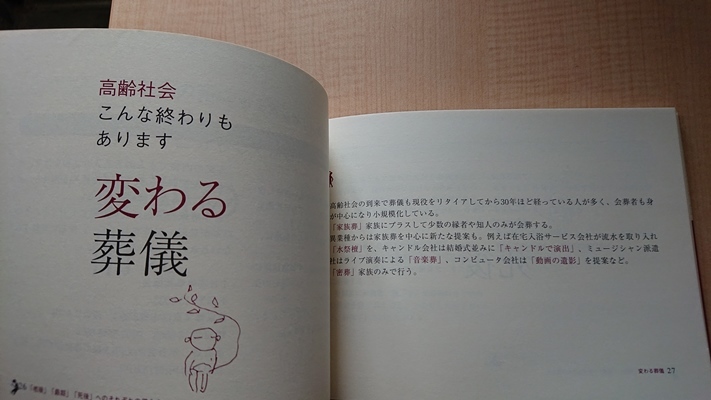 高齢社会
こんな終わりも
あります
変わる
葬儀
高齢社会の到来で葬儀も現役をリタイアしてから30年ほど経っている人が多く、会葬者も身
が中心になり小規模化している。
「家族葬」家族にプラスして少数の縁者や知人のみが会葬する。
異業種からは家族葬を中心に新たな提案も。例えば在宅入浴サービス会社が流水を取り入れ
「水祭壇」を、キャンドル会社は結婚式並みに「キャンドルで演出」、ミュージシャン派遣
社はライブ演奏による「音楽葬」、コンピュータ会社は「動画の遺影」を提案など。
「密葬」家族のみで行う。
変わる葬儀 27